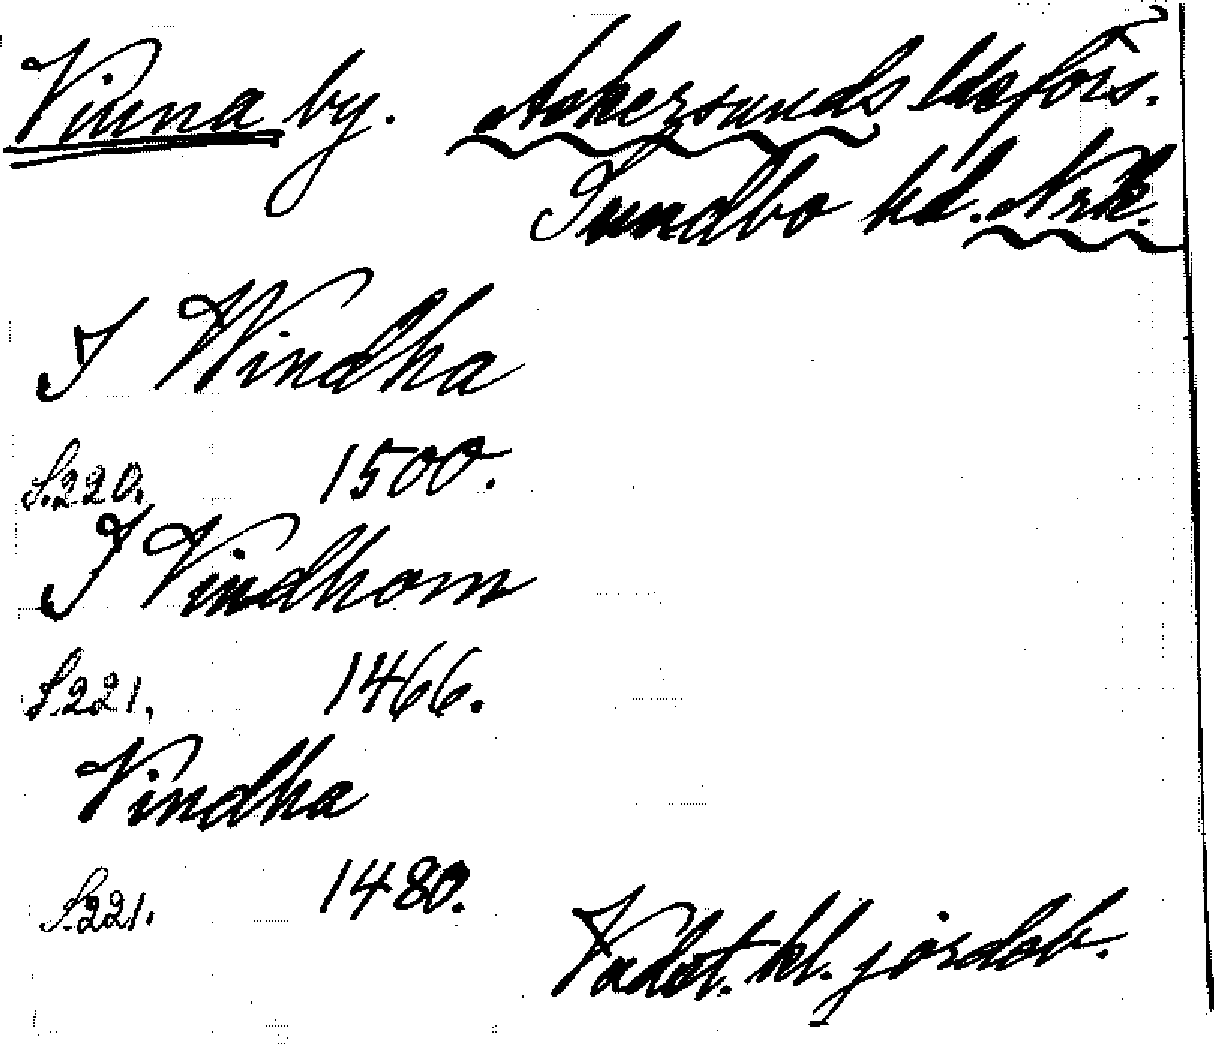 Vinna by. Askersunds ldsförs.
Sundbo hd. Nrk.
I Windha
S. 220. 1500.
I Vindhom
S. 221. 1466.
Vindha
S. 221. 1480.
Vadst. kl. jordeb.